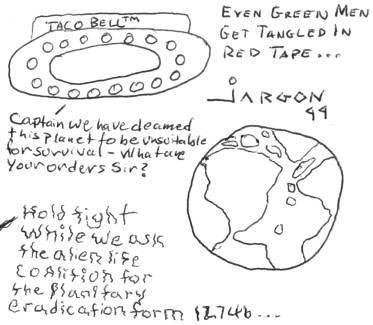 TACO BELL™
EVEN GREEN MEN
GET TANGLED IN
RED TAPE...
JARGON
99
Captain we have deamed
this planet to be unsuitable
for survival - What are
your orders Sir?
Hold tight
While we ask
the alien life
coalition for
the Planitary
eradication form 1274b...